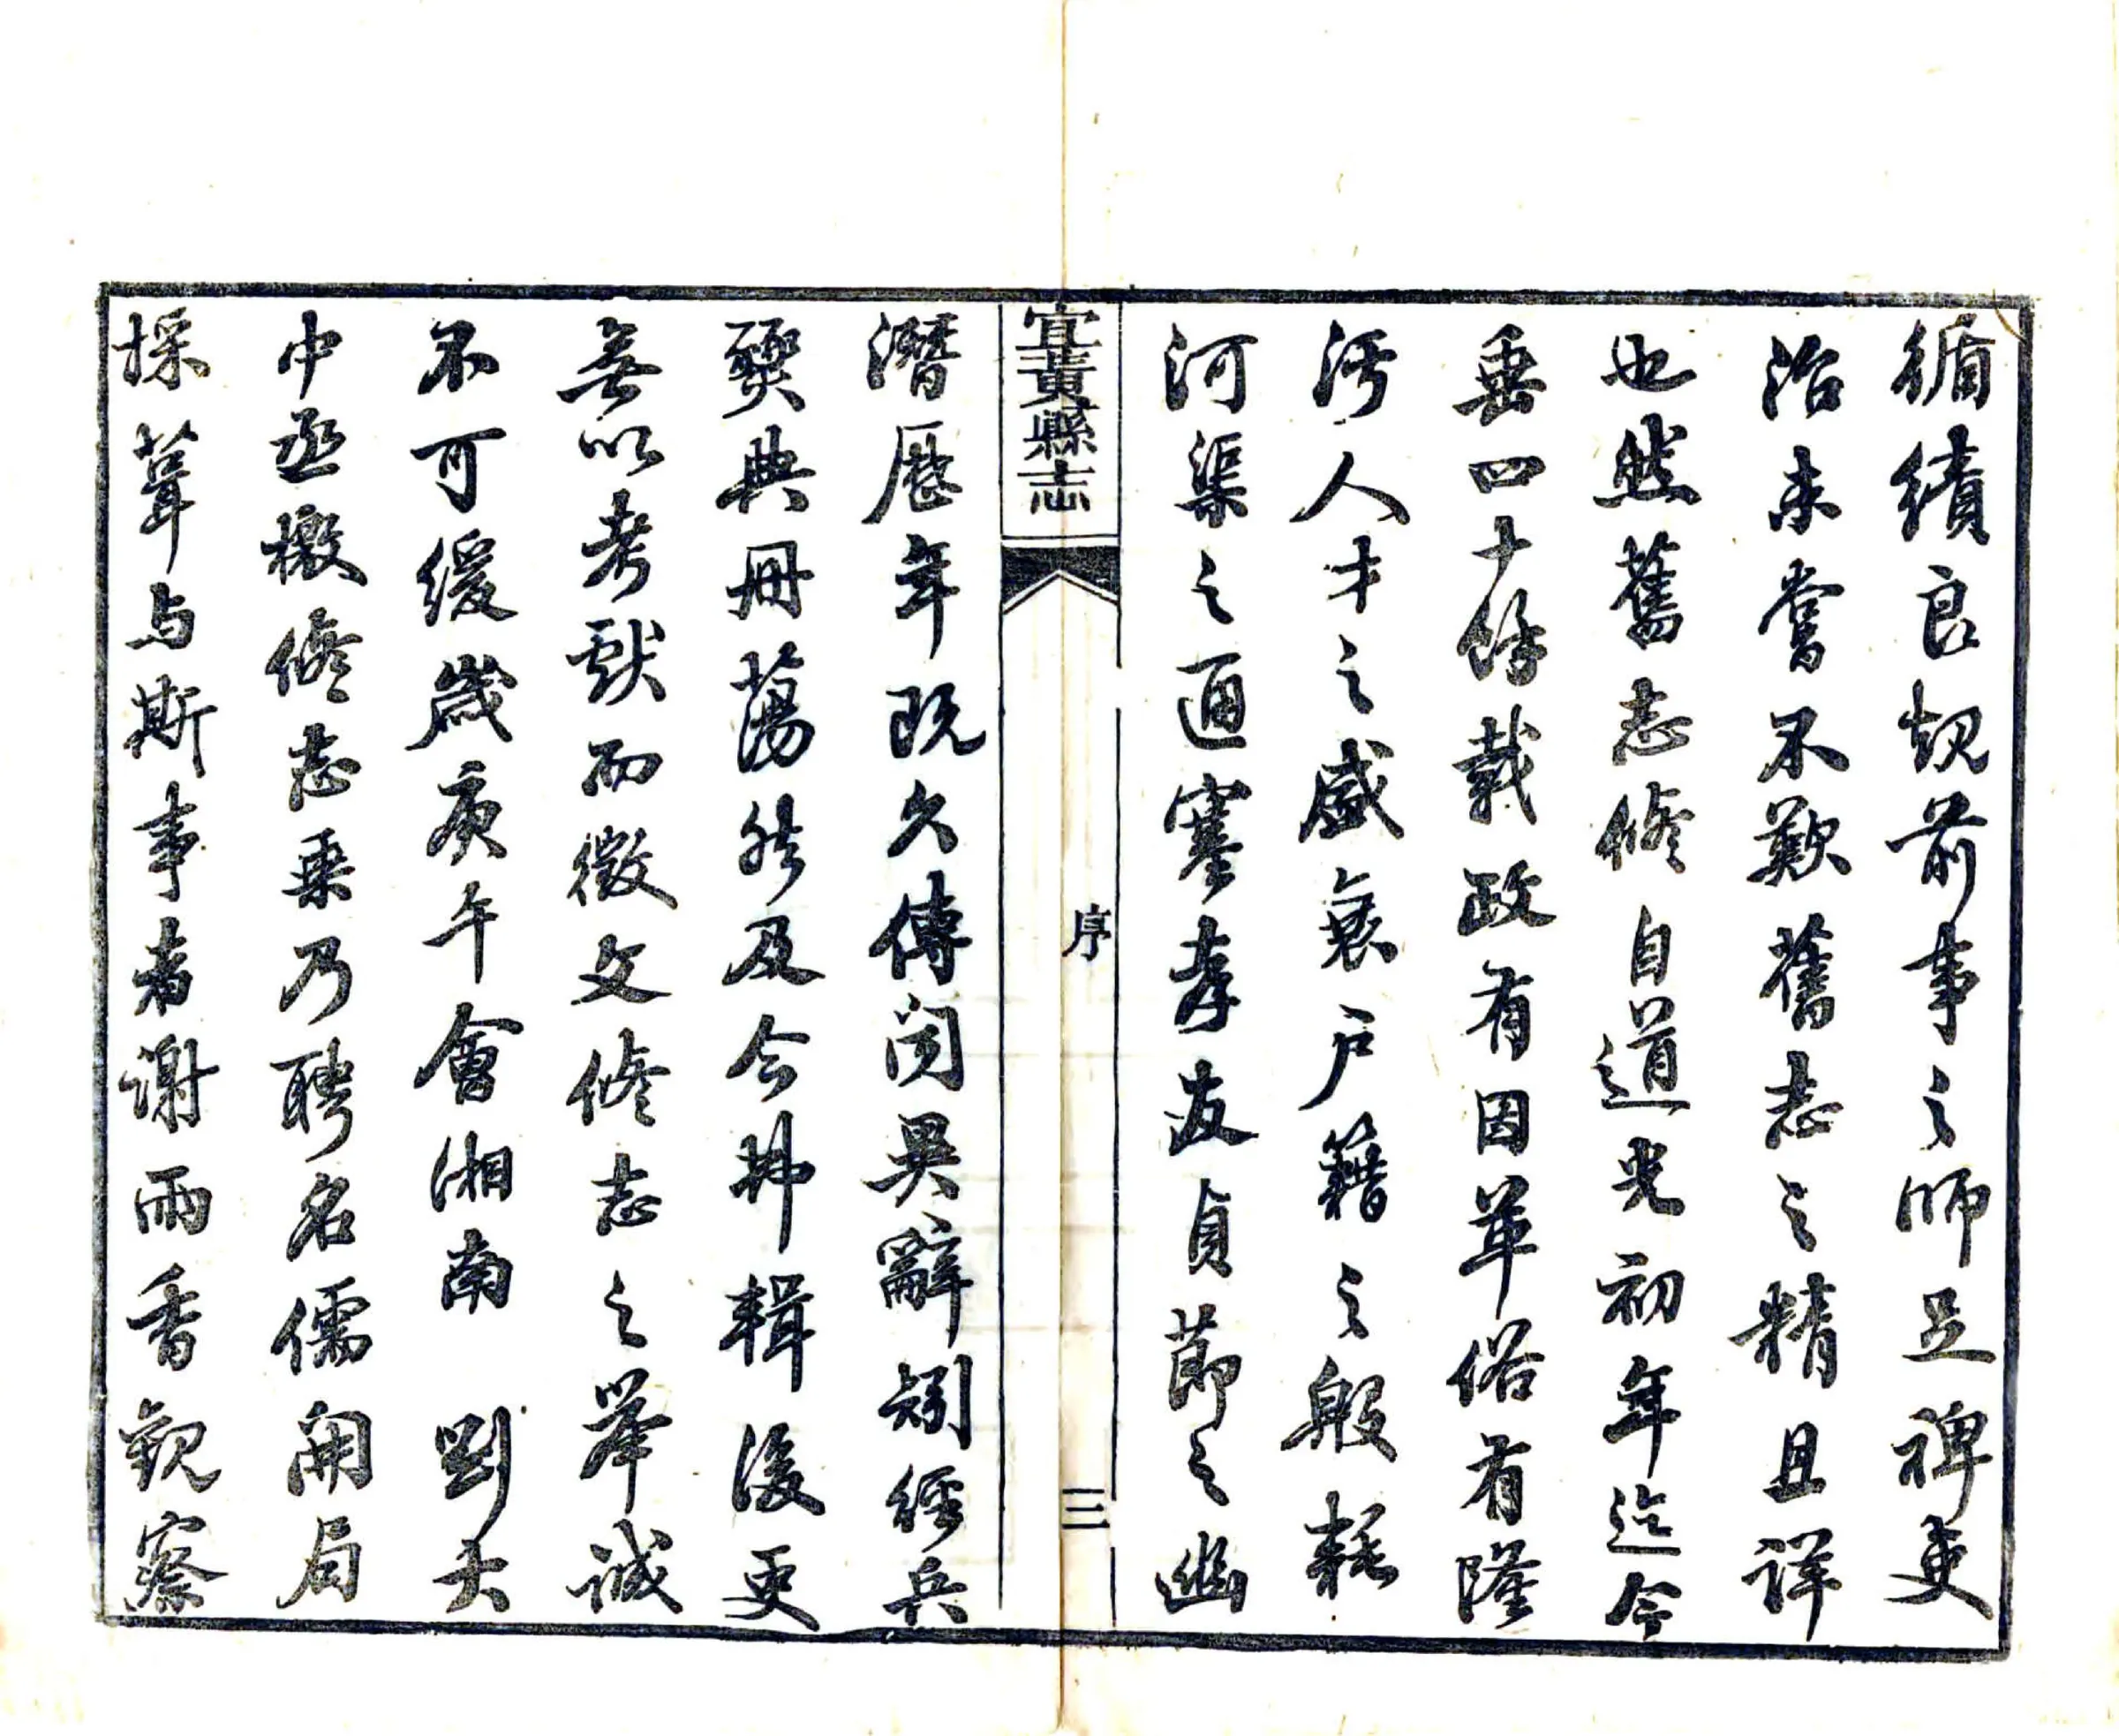 循績良規前事之師足裨吏
治未嘗不歎舊志之精且詳
也然舊志修自道光初年迄今
垂四十餘載政有因革俗有隆
污人才之盛衰户籍之殷耗
河渠之通塞孝友貞節之幽
宜黃縣志
序
三
潛歷年既久傳闻異辭矧經兵
燹典冊蕩然及今弗輯後更
無以考獻而徵文修志之舉誠
不可緩歲庚午會湘南劉大
中丞檄修志乘乃聘名儒開局
採葺与斯事者谢雨香觀察